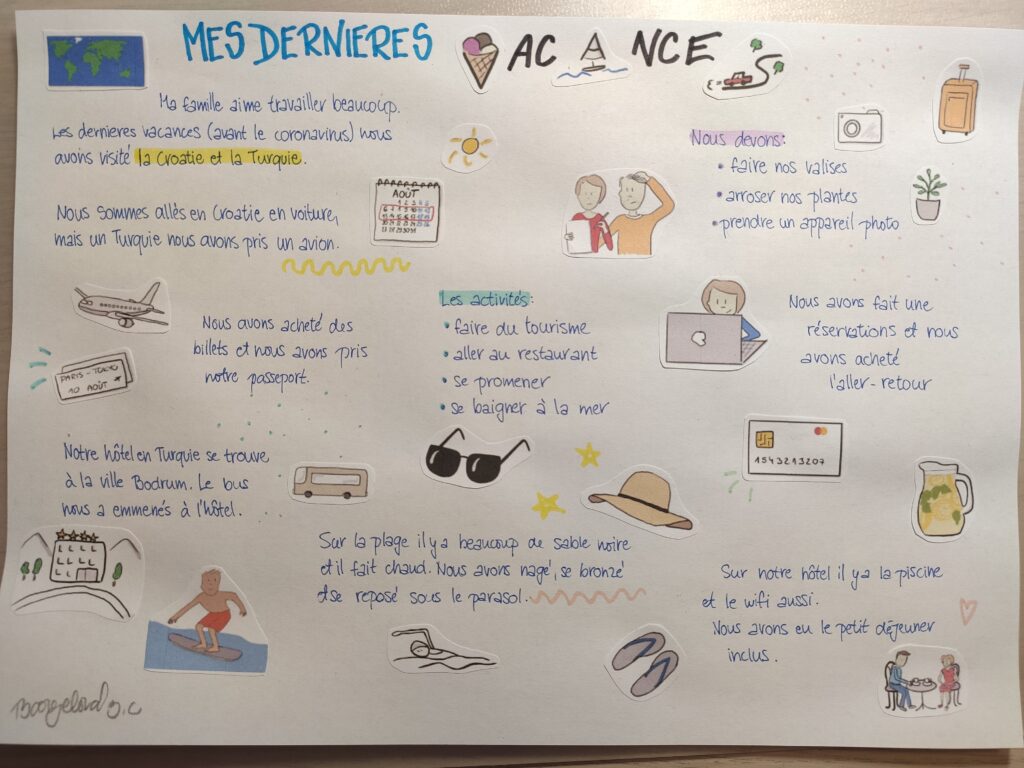 MES DERNIERES VACANCE
Ma famille aime travailler beaucoup.
Les dernieres vacances (avant le coronavirus) nous
avons visité la Croatie et la Turquie.
Nous sommes allés en Croatie en voiture,
mais un Turquie nous avons pris un avion.
AOÛT
Nous devons:
• faire nos valises
• arroser nos plantes
• prendre un appareil photo
Nous avons acheté des
billets et nous avons pris
notre passeport.
PARIS - TOKYO
10 AOÛT
Les activités:
• faire du tourisme
• aller au restaurant
• se promener
• se baigner à la mer
Nous avons fait une
réservations et nous
avons acheté
l'aller-retour
1543213207
Notre hôtel en Turquie se trouve
à la ville Bodrum. Le bus
nous a emmenés à l'hôtel.
Sur la plage il y a beaucoup de sable noire
et il fait chaud. Nous avons nagé, se bronzé
et se reposé sous le parasol.
Sur notre hôtel il y a la piscine
et le wifi aussi.
Nous avons eu le petit déjeuner
inclus.